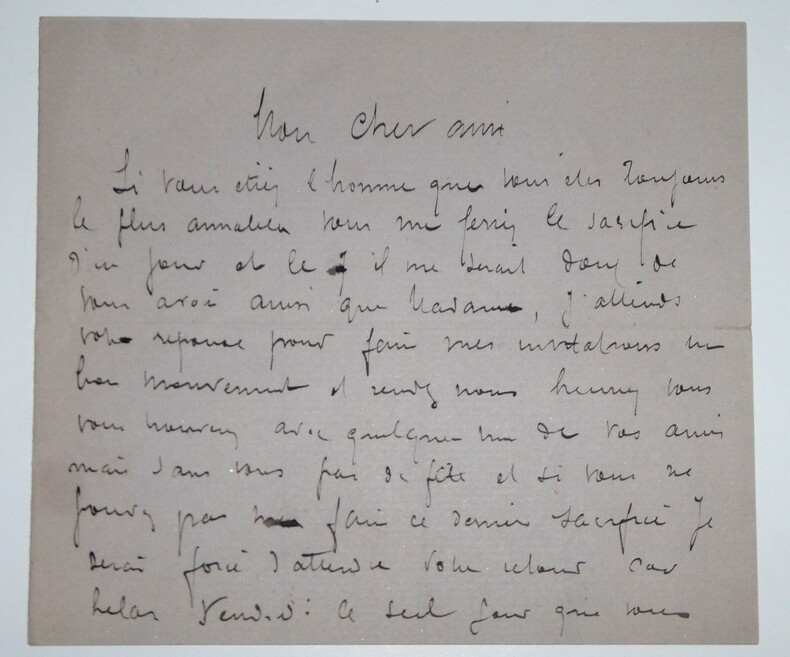 Mon cher ami
Si vous étiez l'homme que vous êtes toujours
le plus aimable vous me feriez le sacrifice
d'un jour et le il me serait doux de
vous avoir ainsi que Madame, j'attends
votre reponse pour faire mes invitations un
bon mouvement et rendez nous heureux vous
vous trouverez avec quelques uns de vos amis
mais sans vous pas de fête et si vous ne
pouvez pas me faire ce dernier sacrifice Je
serai forcé d'attendre votre retour car
helas Vendredi le seul jour que vous